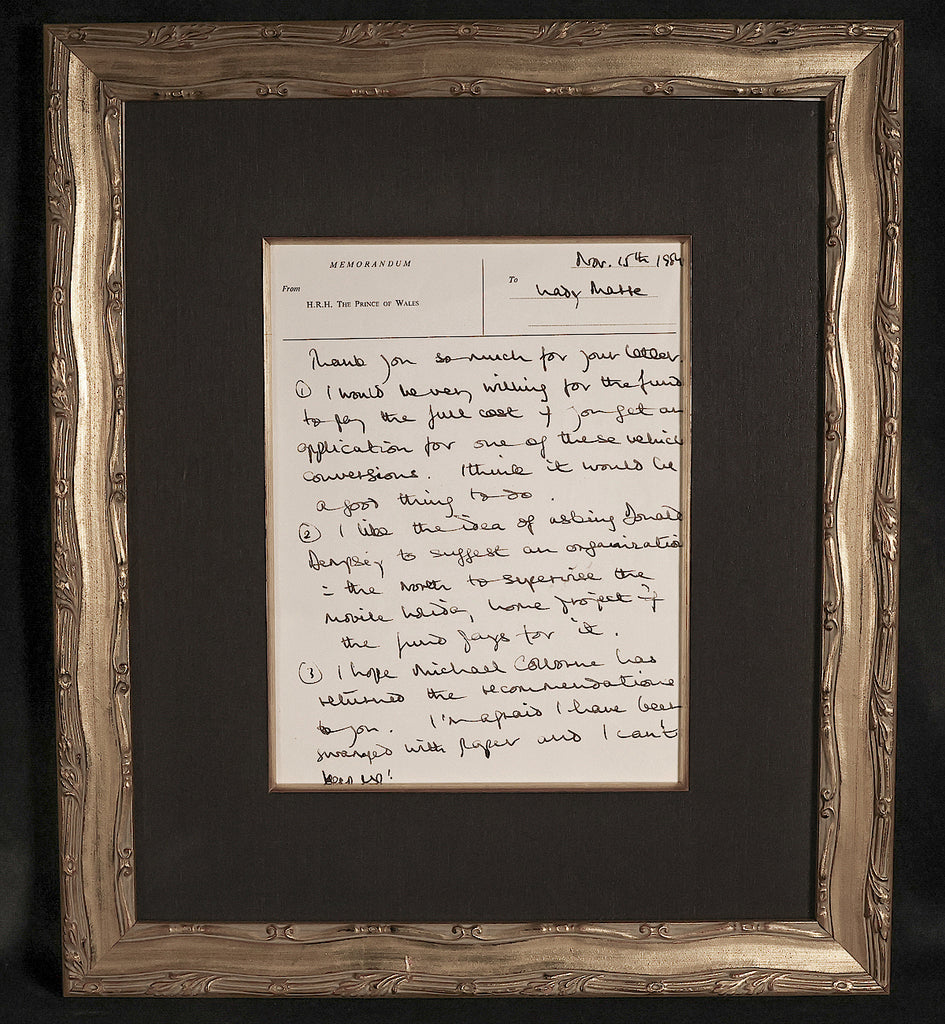 MEMORANDUM
From
H.R.H. The Prince of Wales
Nov. 15th 1984
To
Lady
Thank you so much for your letter.
① I would be very willing for the fund
to pay the full cost if you get an
application for one of these vehicle
conversions. I think it would be
a good thing to do.
② I like the idea of asking Donald
Dempsey to suggest an organization
in the North to supervise the
mobile holiday home project if
the fund pays for it.
③ I hope Michael Colborne has
returned the recommendations
to you. I'm afraid I have been
swamped with paper and I can't
keep up!